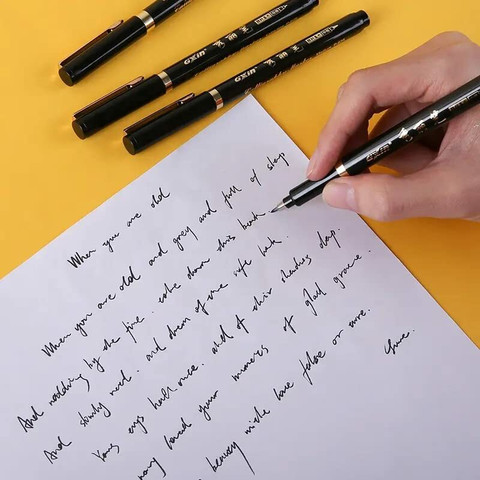 GXin
GXin
GXin
When you are old
When you are old and grey and full of sleep
And nodding by the fire. take down this book
And slowly read. and dream of the soft look.
Your eyes had once. and of their shadows deep.
many loved your moments of glad grace.
beauty with love false or true.